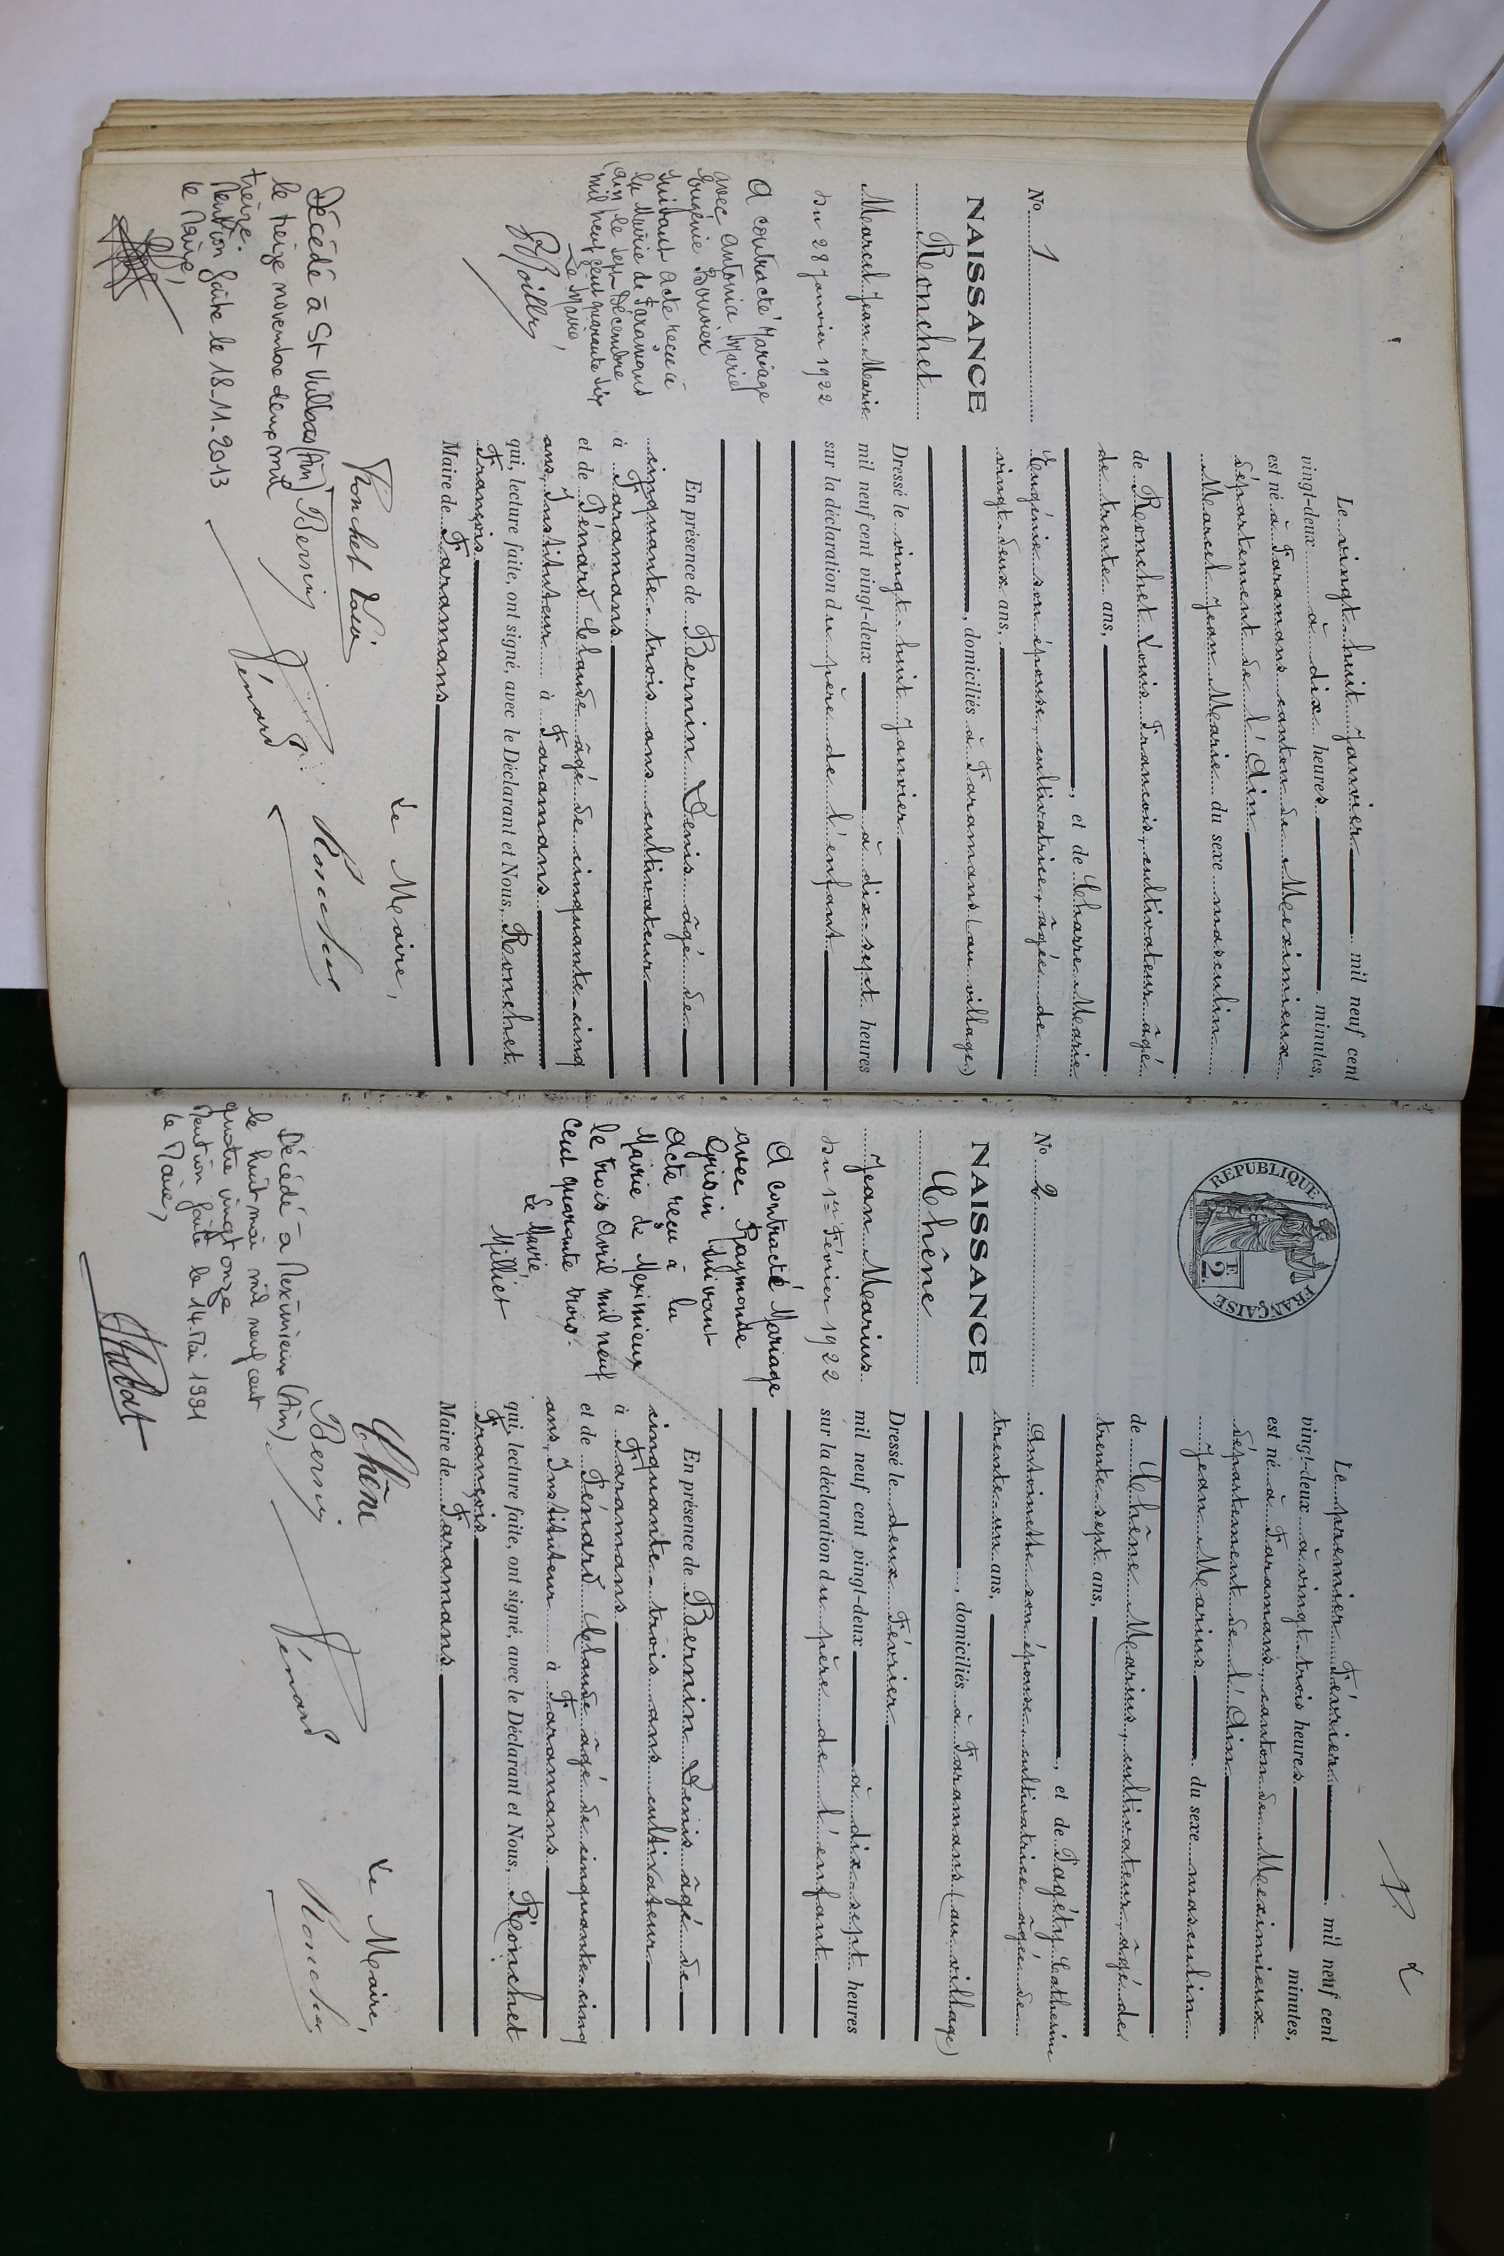 N° 1
NAISSANCE
Ronchet
Marcel Jean Marie
du 28 Janvier 1922
A contracté Mariage
avec Antonia Marie
Eugénie Bouvier
suivant acte reçu à
la Mairie de Faramans
Ain le sept Décembre
mil neuf cent quarante six
Le Maire,
Décédé à St Vulbas (Ain)
le treize novembre deux mil
treize.
Mention faite le 18-11-2013
Le Maire,
Le vingt-huit Janvier mil neuf cent
vingt-deux à dix heures minutes,
est né à Faramans canton de Meximieux
département de l'Ain
Marcel Jean Marie du sexe masculin
de Ronchet Louis François, cultivateur âgé
de trente ans,
, et de Charre Marie
Eugénie son épouse, cultivatrice, âgée de
vingt-deux ans,
, domiciliés à Faramans (au village)
Dressé le vingt-huit Janvier
mil neuf cent vingt-deux à dix-sept heures
sur la déclaration du père de l'enfant
En présence de Bernin Denis âgé de
cinquante-trois ans cultivateur
à Faramans
et de Pénard Claude âgé de cinquante-cinq
ans, Instituteur à Faramans
qui, lecture faite, ont signé, avec le Déclarant et Nous, Ronchet
François
Maire de Faramans
Le Maire,
Ronchet Louis
Bernin
Pénard
Ronchet
2
REPUBLIQUE FRANÇAISE
2F
N° 2
NAISSANCE
Chêne
Jean Marius
du 1er Février 1922
A contracté Mariage
avec Raymonde
Grisin suivant
acte reçu à la
Mairie de Meximieux
le trois Avril mil neuf
cent quarante trois.
Le Maire,
Milliet
Décédé à Meximieux (Ain)
le huit mai mil neuf cent
quatre vingt onze
Mention faite le 14 Mai 1991
Le Maire,
Le premier Février mil neuf cent
vingt-deux à vingt-trois heures minutes,
est né à Faramans, canton de Meximieux
département de l'Ain
Jean Marius du sexe masculin
de Chêne Marius, cultivateur, âgé de
trente-sept ans,
, et de Pagéty Catherine
Antoinette son épouse, cultivatrice âgée de
trente-un ans,
, domiciliés à Faramans (au village)
Dressé le deux Février
mil neuf cent vingt-deux à dix-sept heures
sur la déclaration du père de l'enfant
En présence de Bernin Denis âgé de
cinquante-trois ans cultivateur
à Faramans
et de Pénard Claude âgé de cinquante-cinq
ans, Instituteur à Faramans
qui, lecture faite, ont signé, avec le Déclarant et Nous, Ronchet
François
Maire de Faramans
Le Maire,
Chêne
Bernin
Pénard
Ronchet